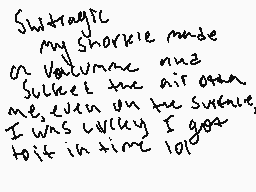 Suitragic
my snorkle made
a valcumme and
sucked the air outta
me, even on the surface,
I was lucky I got
to it in time lol